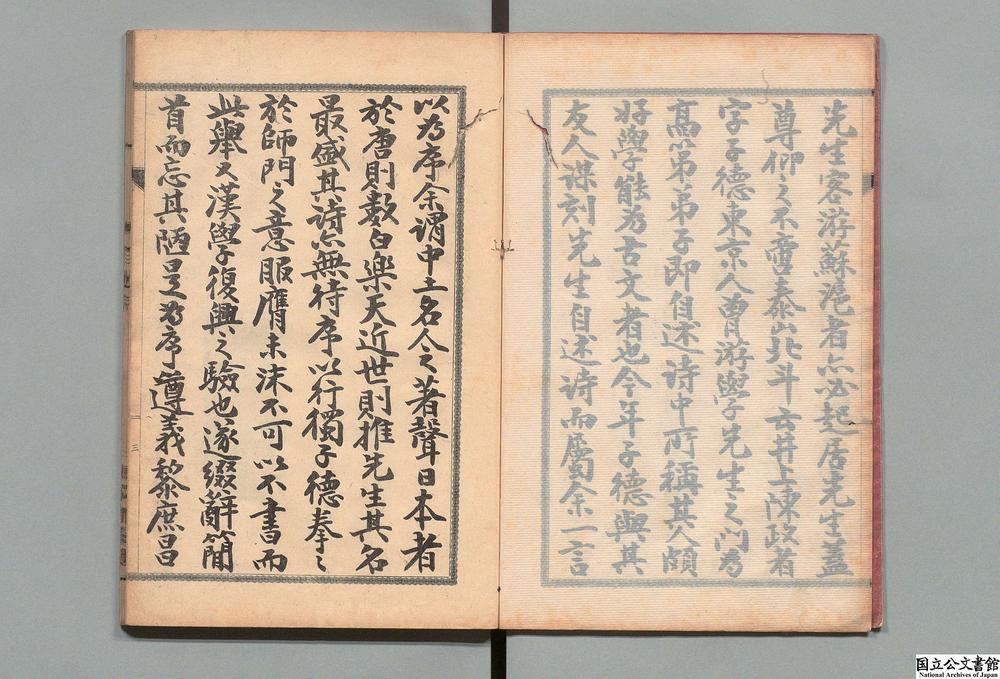 先生客游蘇滬者亦必起居先生蓋
尊仰之不啻泰山北斗云井上陳政者
字子德東京人曾游學先生之門為
高第弟子即自述詩中所稱其人頗
好學能為古文者也今年子德與其
友人謀刻先生自述詩而屬余一言
以為序余謂中土名人之著聲日本者
於唐則数白樂天近世則推先生其名
最盛其詩亦無待序以行獨子德拳〻
於師門之意服膺未沫不可以不書而
此舉又漢學復興之驗也遂綴辭簡
首而忘其陋是為序遵義黎庶昌
三
国立公文書館
National Archives of Japan